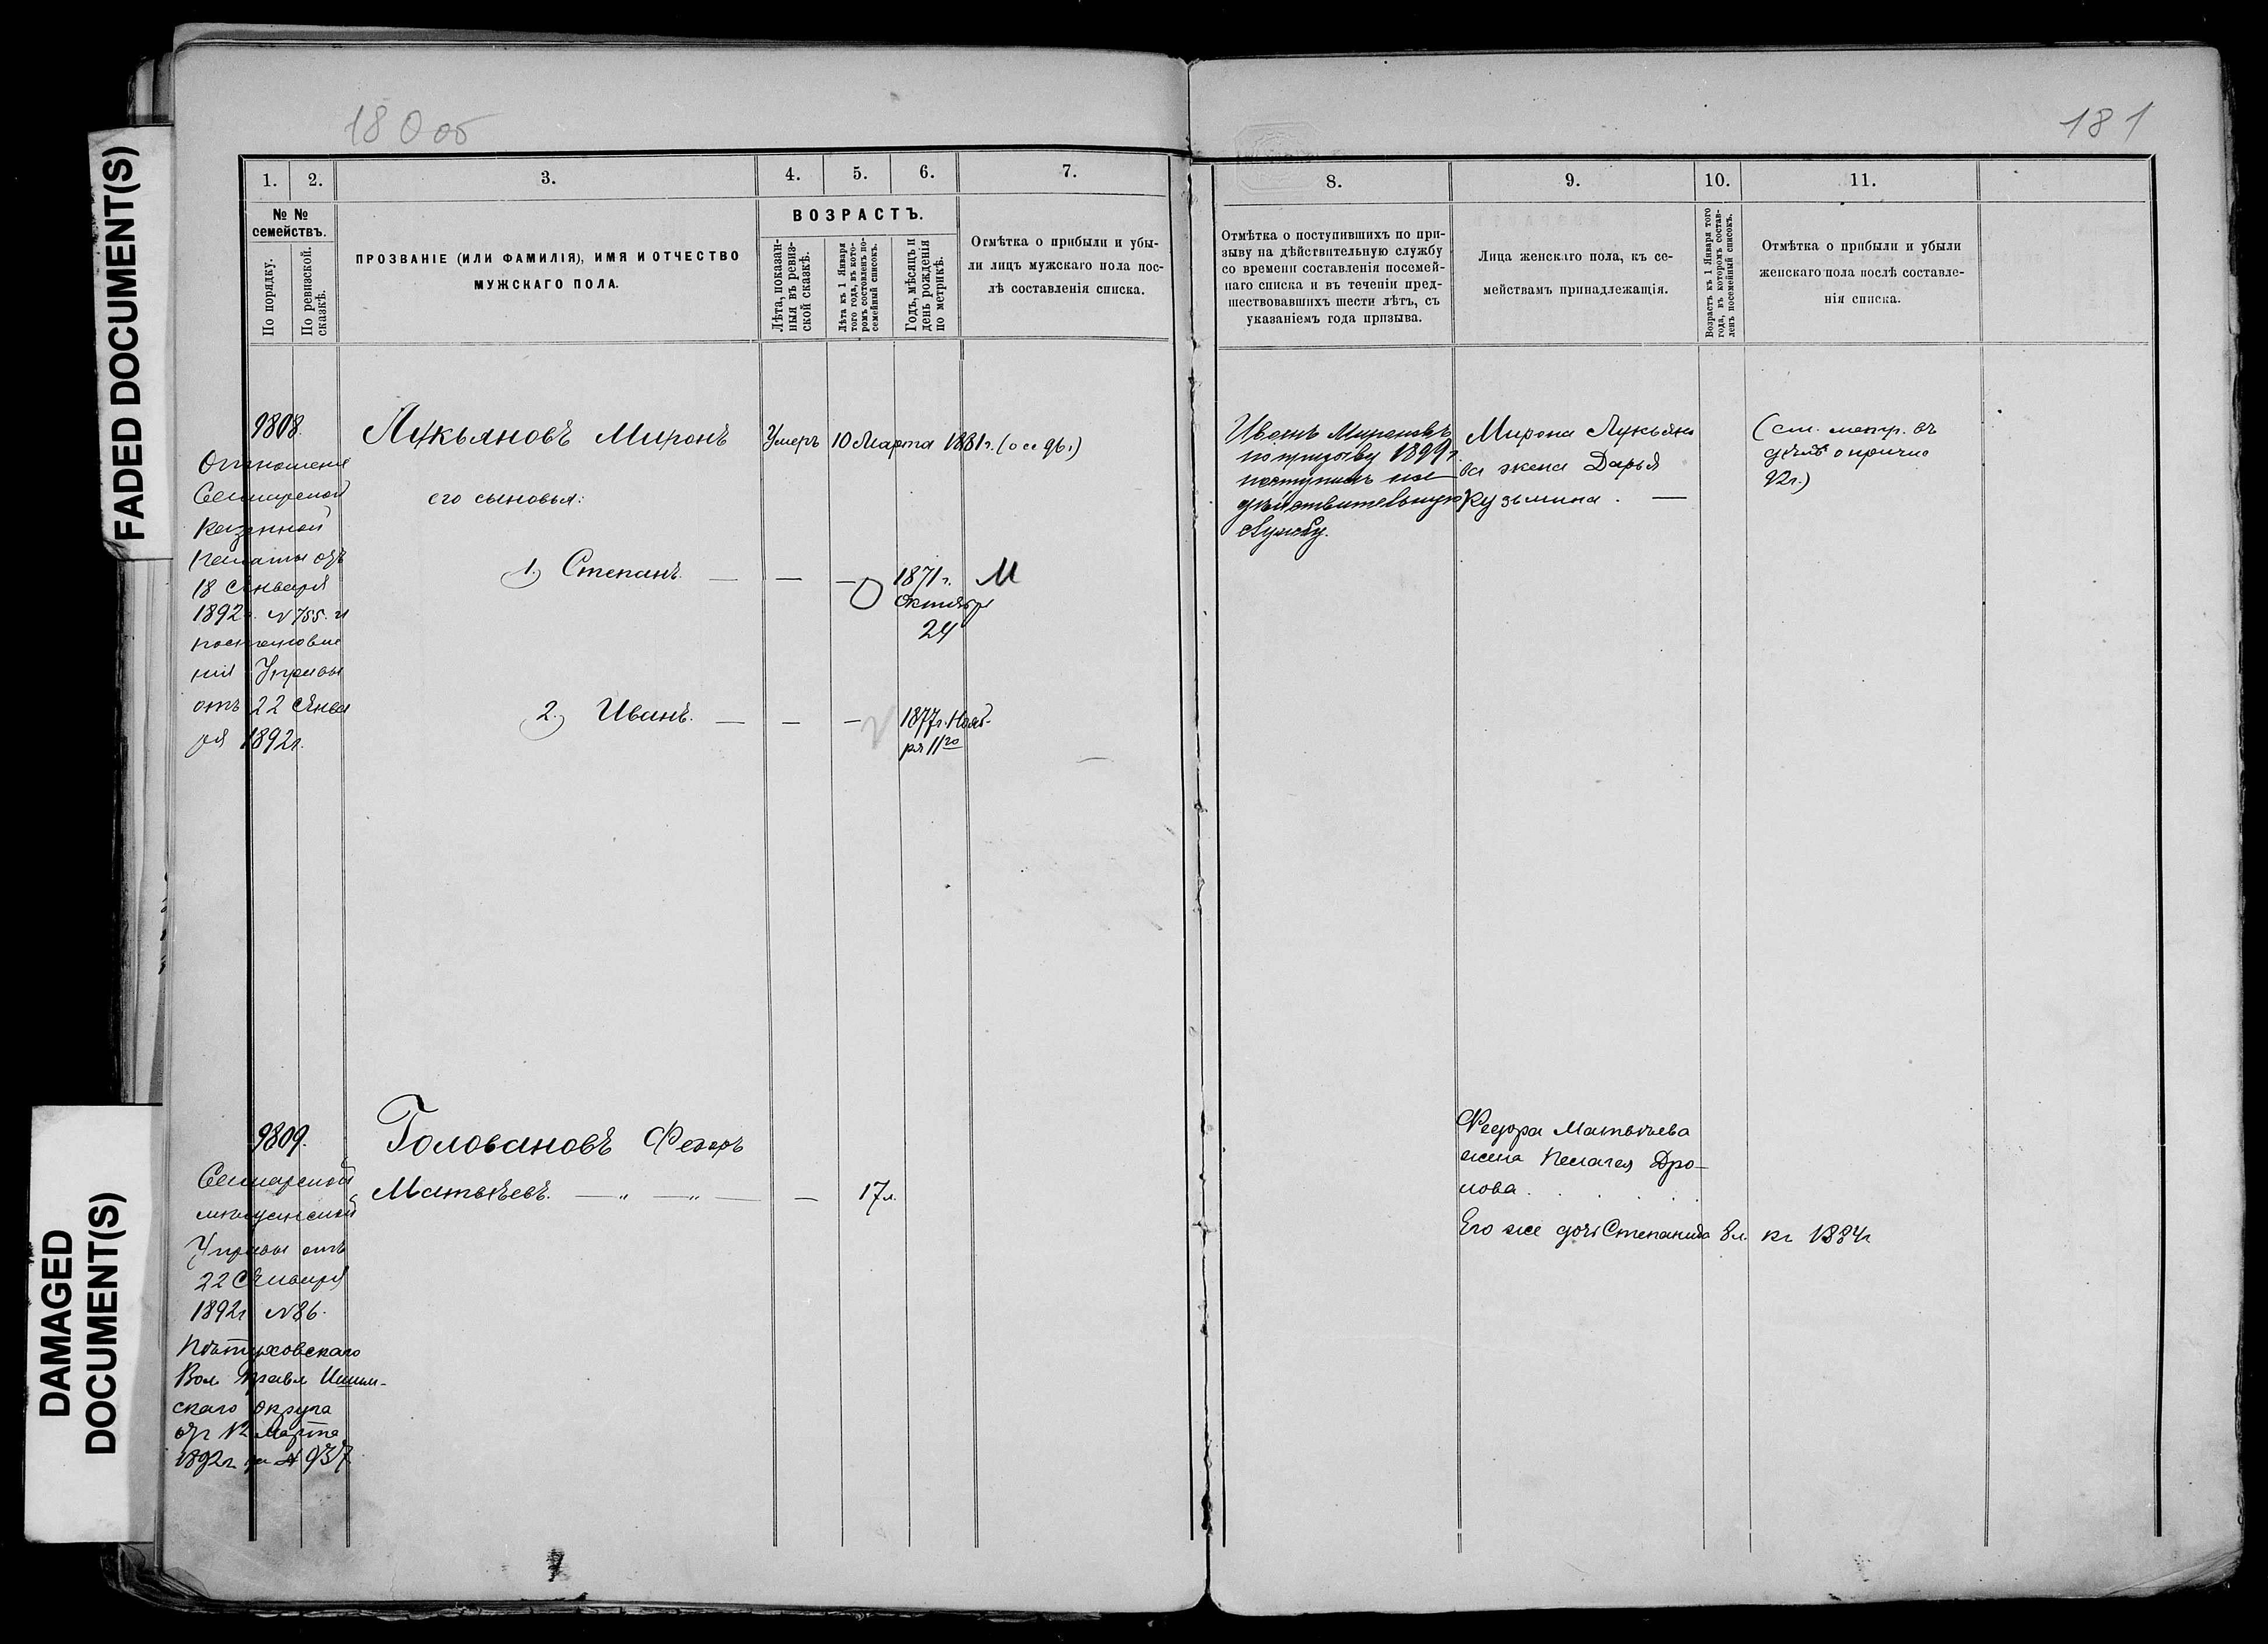 FADED DOCUMENT(S)
DAMAGED
DOCUMENT(S)
180об
1.
2.
3.
4.
5.
6.
7.
№ №
семействъ.
По порядку.
По ревизской
сказкѣ.
ПРОЗВАНІЕ (ИЛИ ФАМИЛІЯ), ИМЯ И ОТЧЕСТВО
МУЖСКАГО ПОЛА.
ВОЗРАСТЪ.
Лѣта, показан-
ныя въ ревиз-
ской сказкѣ.
Лѣта къ 1 Января
того года, въ кото-
ромъ составленъ по-
семейный списокъ.
Годъ, мѣсяцъ и
день рожденія
по метрикѣ.
Отмѣтка о прибыли и убы-
ли лицъ мужскаго пола пос-
лѣ составленія списка.
9808.
Отношеніе
Самарской
Казенной
Палаты отъ
18 Января
1892г. №755. и
постановле
нія Управы
отъ 22 Янва
ря 1892г.
Лукьяновъ Миронъ Умеръ 10 Марта 1881г.
его сыновья:
1.) Степанъ. — — — 1871г. М
Октября
24
2.) Иванъ. — — — 1877г. Нояб-
ря 11го
9809.
Самарской
мѣщанской
Управы отъ
22 Января
1892г. №86.
Пѣтуховскаго
Вол. Правл Ишим-
скаго округа
от 12 Марта
1892г за № 937
Головановъ Федоръ
Матвѣевъ. — „ — „ — — 17л.
181
8.
9.
10.
11.
Отмѣтка о поступившихъ по при-
зыву на дѣйствительную службу
со времени составленія посемей-
наго списка и въ теченіи пред-
шествовавшихъ шести лѣтъ, съ
указаніемъ года призыва.
Лица женскаго пола, къ се-
мействамъ принадлежащія.
Возрастъ къ 1 Января того
года, въ которомъ состав-
ленъ посемейный списокъ.
Отмѣтка о прибыли и убыли
женскаго пола послѣ составле-
нія списка.
Иванъ Мироновъ
по призыву 1899г.
поступилъ на
дѣйствительную
службу.
Мирона Лукьяно
ва жена Дарья
Кузьмина. —
(см. метр. въ
дѣлѣ о причис
92г.)
Федора Матвѣева
жена Пелагея Дро-
нова . . . . .
Его же дочь Степанида 8л. кг 1884г